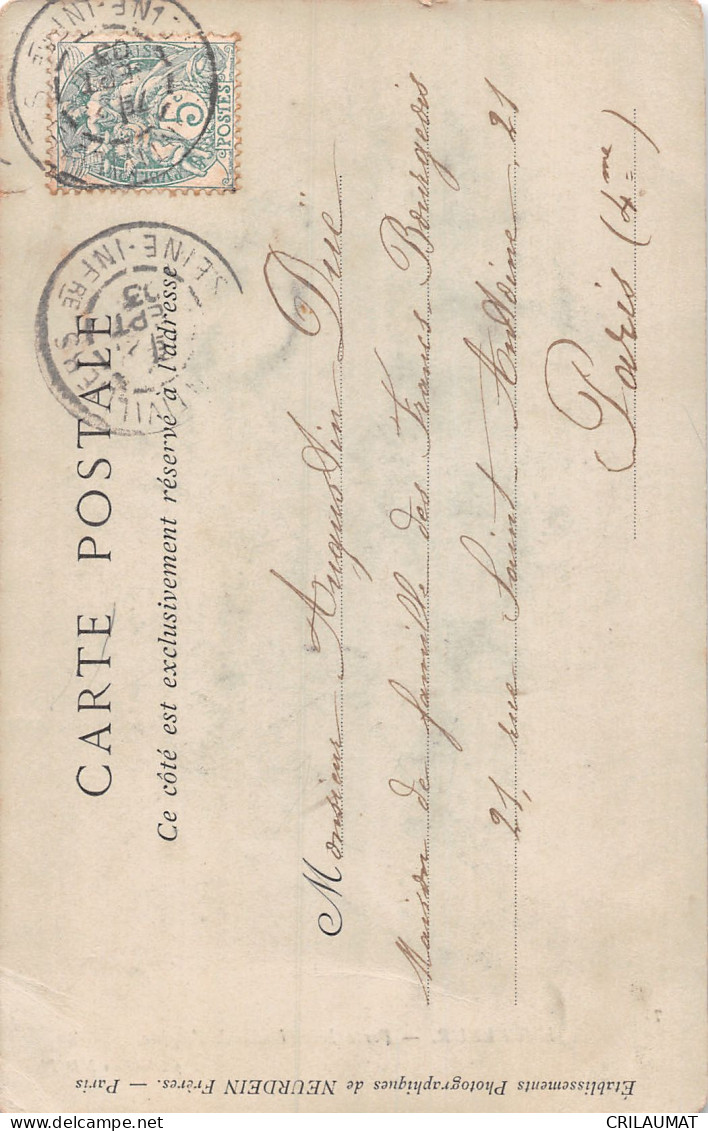 CARTE POSTALE
Ce côté est exclusivement réservé à l'adresse
Monsieur Augustin Düé
Maison de famille des Francs Bourgeois
21, rue Saint Antoine, 21
Paris (4me)
Établissements Photographiques de NEURDEIN Frères. — Paris
POSTES
5
SEPT
03
SEINE-INFRE
SEPT
03
CRILAUMAT